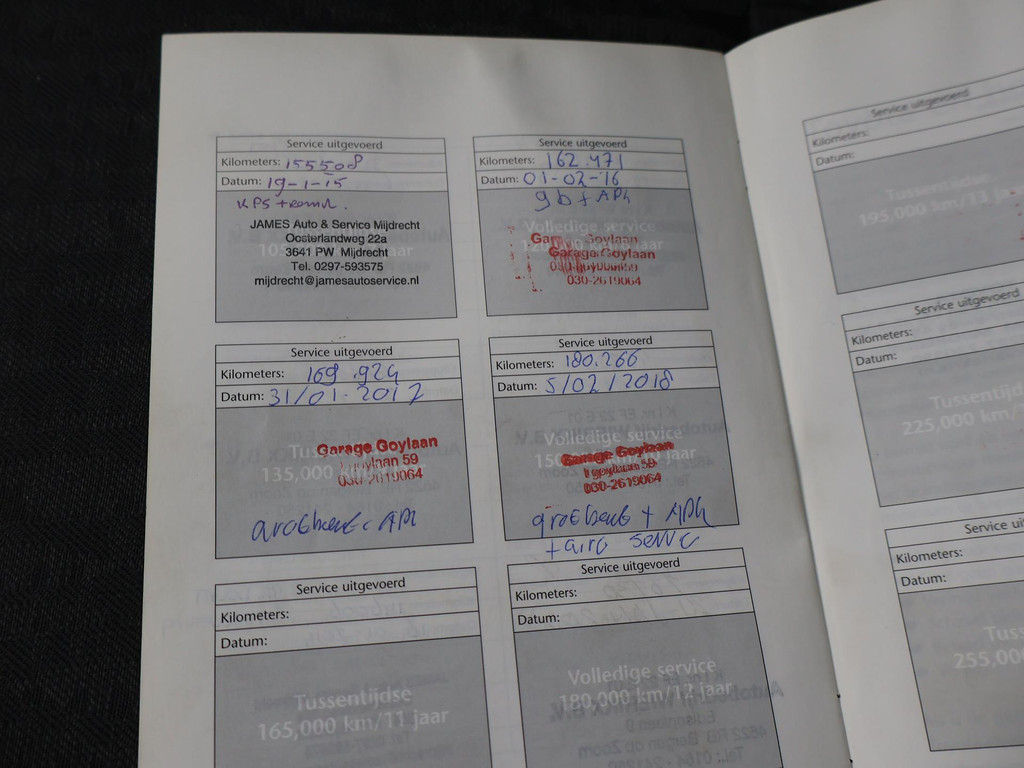 Service uitgevoerd
Kilometers: 155508
Datum: 19-1-15
JAMES Auto & Service Mijdrecht
Oosterlandweg 22a
3641 PW Mijdrecht
Tel. 0297-593575
mijdrecht@jamesautoservice.nl
Service uitgevoerd
Kilometers: 162.471
Datum: 01-02-'16
gb + APk
Volledige service
Garage Goylaan
Garage Goylaan
030-2619064
Service uitgevoerd
Kilometers: 169.924
Datum: 31/01-2017
Garage Goylaan
goylaan 59
030-2619064
135,000 km/
Service uitgevoerd
Kilometers: 180.266
Datum: 5/02/2018
Volledige service
Garage Goylaan
goylaan 59
030-2619064
jaar
+ APk
+ airo
Service uitgevoerd
Kilometers:
Datum:
Tussentijdse
165,000 km/11 jaar
Service uitgevoerd
Kilometers:
Datum:
Volledige service
180,000 km/12 jaar
Service uitgevoerd
Kilometers:
Datum:
Tussentijdse
195,000 km/13
Service uitgevoerd
Kilometers:
Datum:
225,000 km/
Service uit
Kilometers:
Datum:
255,00